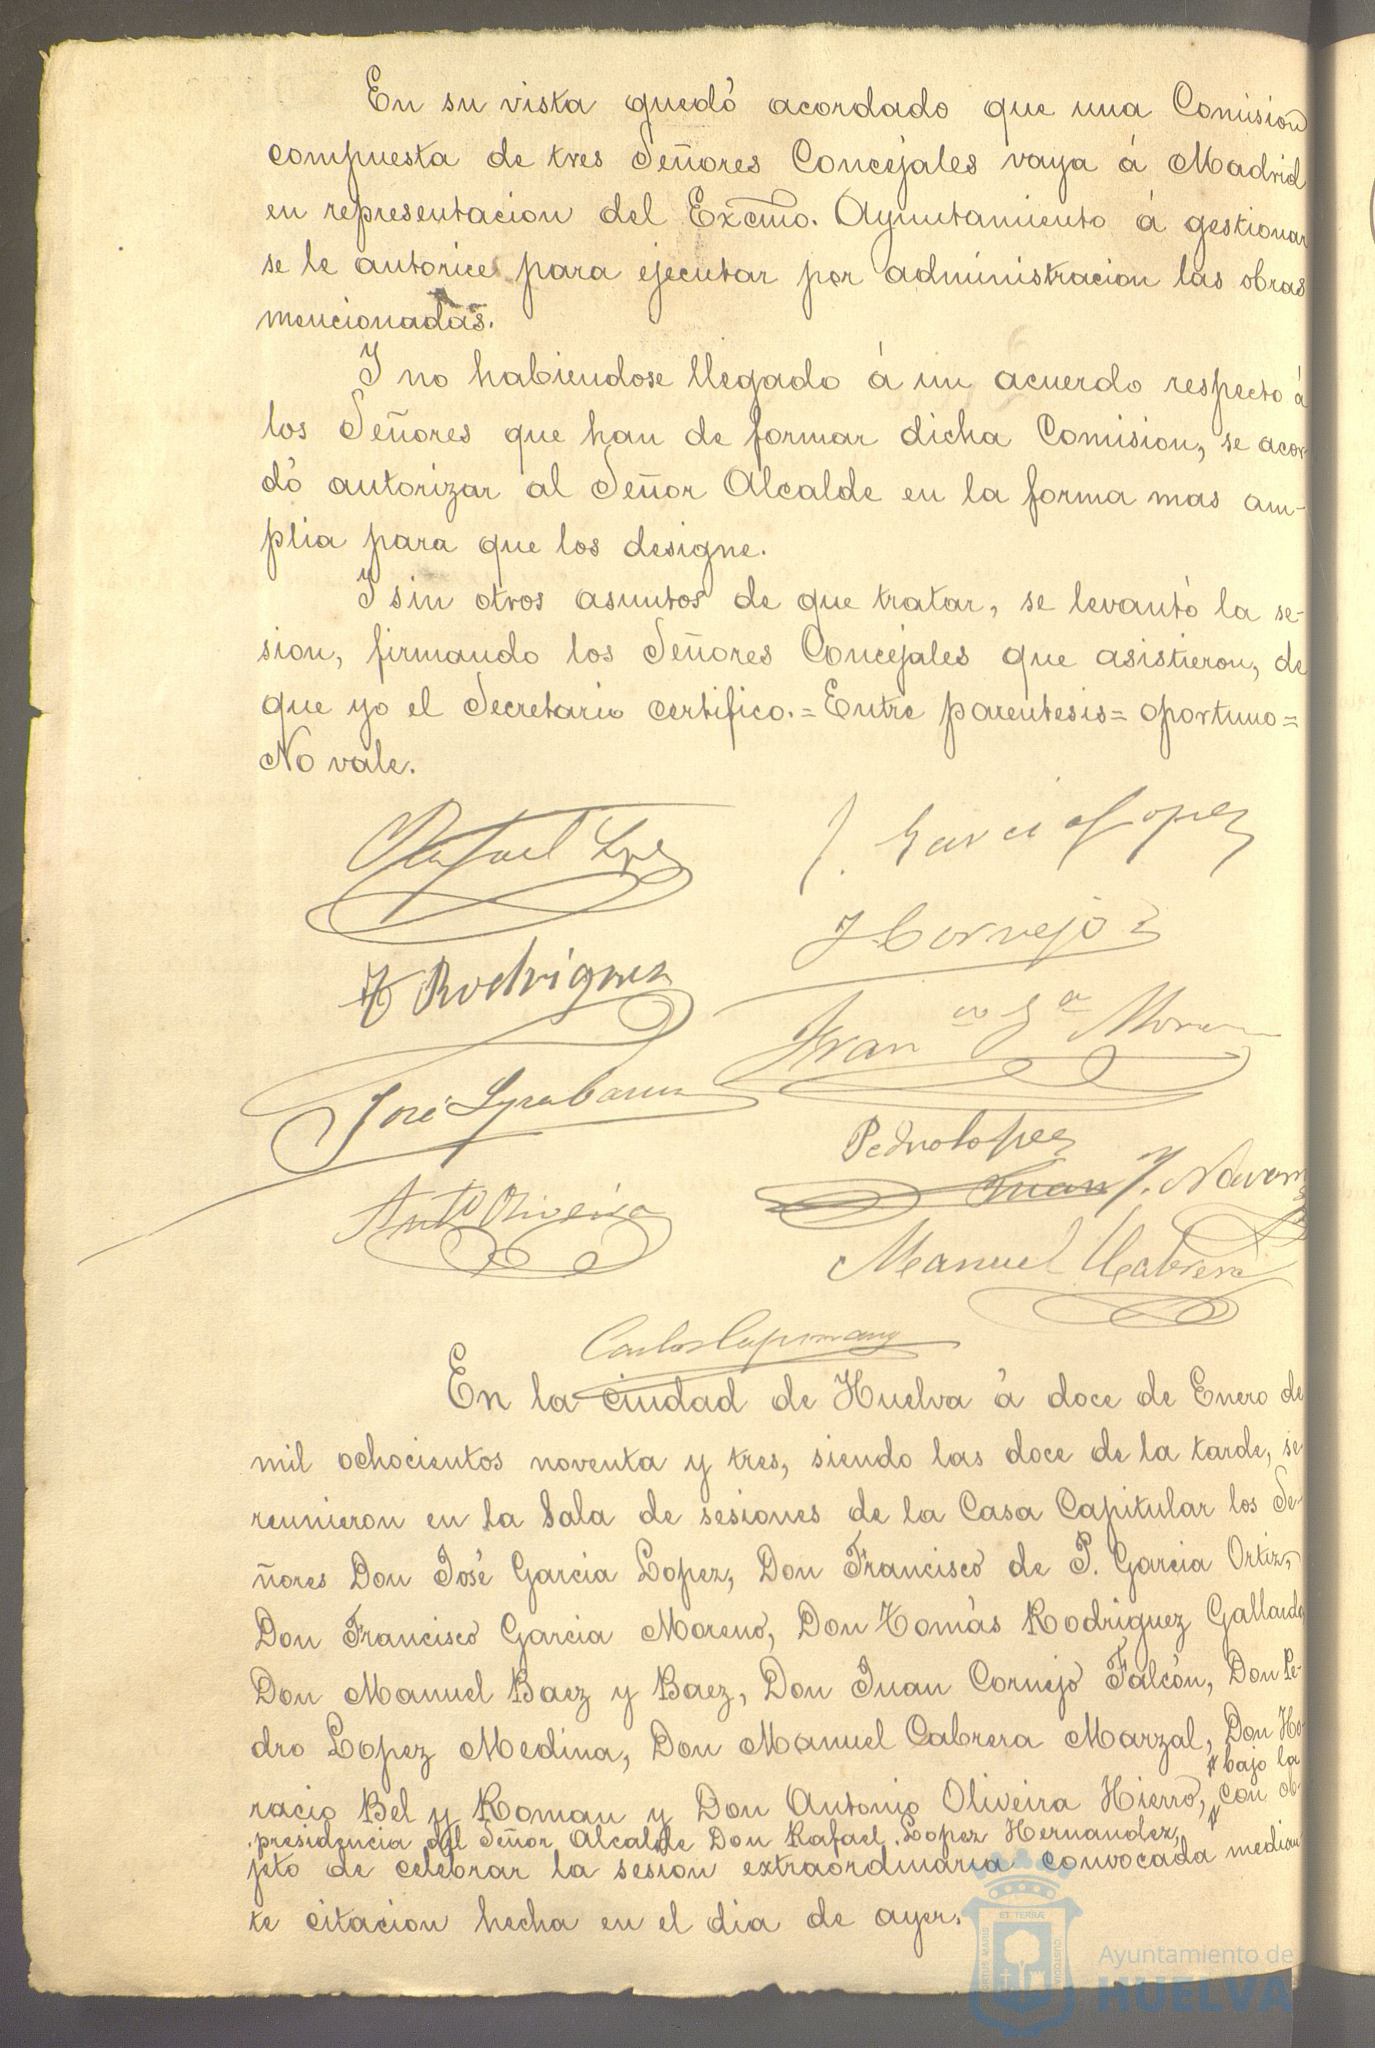 En su vista quedó acordado que una Comision
compuesta de tres Señores Concejales vaya á Madrid
en representacion del Excmo. Ayuntamiento á gestionar
se le autorice para ejecutar por administracion las obras
mencionadas.
Y no habiendose llegado á un acuerdo respecto á
los Señores que han de formar dicha Comision, se acor
dó autorizar al Señor Alcalde en la forma mas am-
plia para que los designe.
Y sin otros asuntos de que tratar, se levantó la se-
sion, firmando los Señores Concejales que asistieron, de
que yo el Secretario certifico.=Entre parentesis=oportuno=
No vale.
Rafael Lpz
J. Garcia Lopez
J Cornejo
T Rodriguez
Fran co Ga Moreno
José
Pedro Lopez
Juan J. Navarro
Anto Oliveira
Manuel Cabrera
Carlos
En la ciudad de Huelva á doce de Enero de
mil ochocientos noventa y tres, siendo las doce de la tarde, se
reunieron en la Sala de sesiones de la Casa Capitular los Se-
ñores Don José Garcia Lopez, Don Francisco de P. Garcia Ortiz,
Don Francisco Garcia Moreno, Don Tomás Rodriguez Gallardo
Don Manuel Baez y Baez, Don Juan Cornejo Falcón, Don Pe-
dro Lopez Medina, Don Manuel Cabrera Marzal, Don Ho-
bajo la
racio Bel y Roman y Don Antonio Oliveira Hierro, con ob-
presidencia del Señor Alcalde Don Rafael Lopez Hernandez,
jeto de celebrar la sesion extraordinaria convocada median
te citacion hecha en el dia de ayer.
Ayuntamiento de
HUELVA